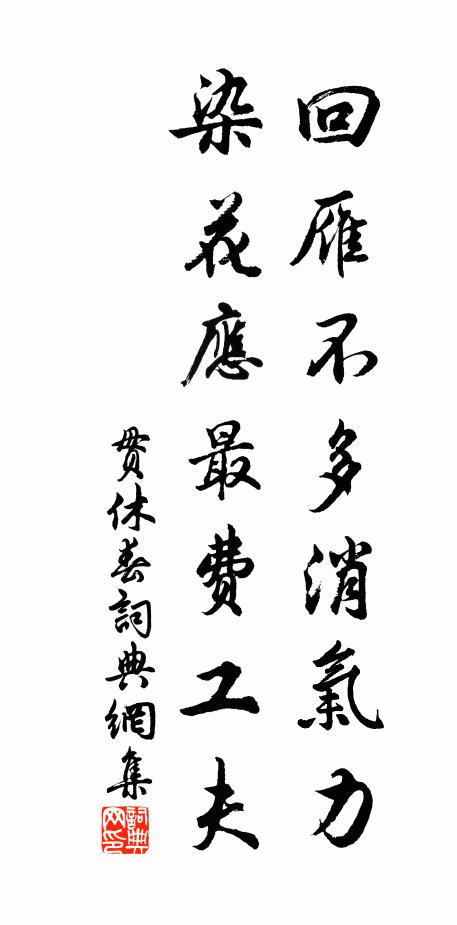 回雁不多消氣力
染花應最費工夫
貫休春詞典網集
詞典网印